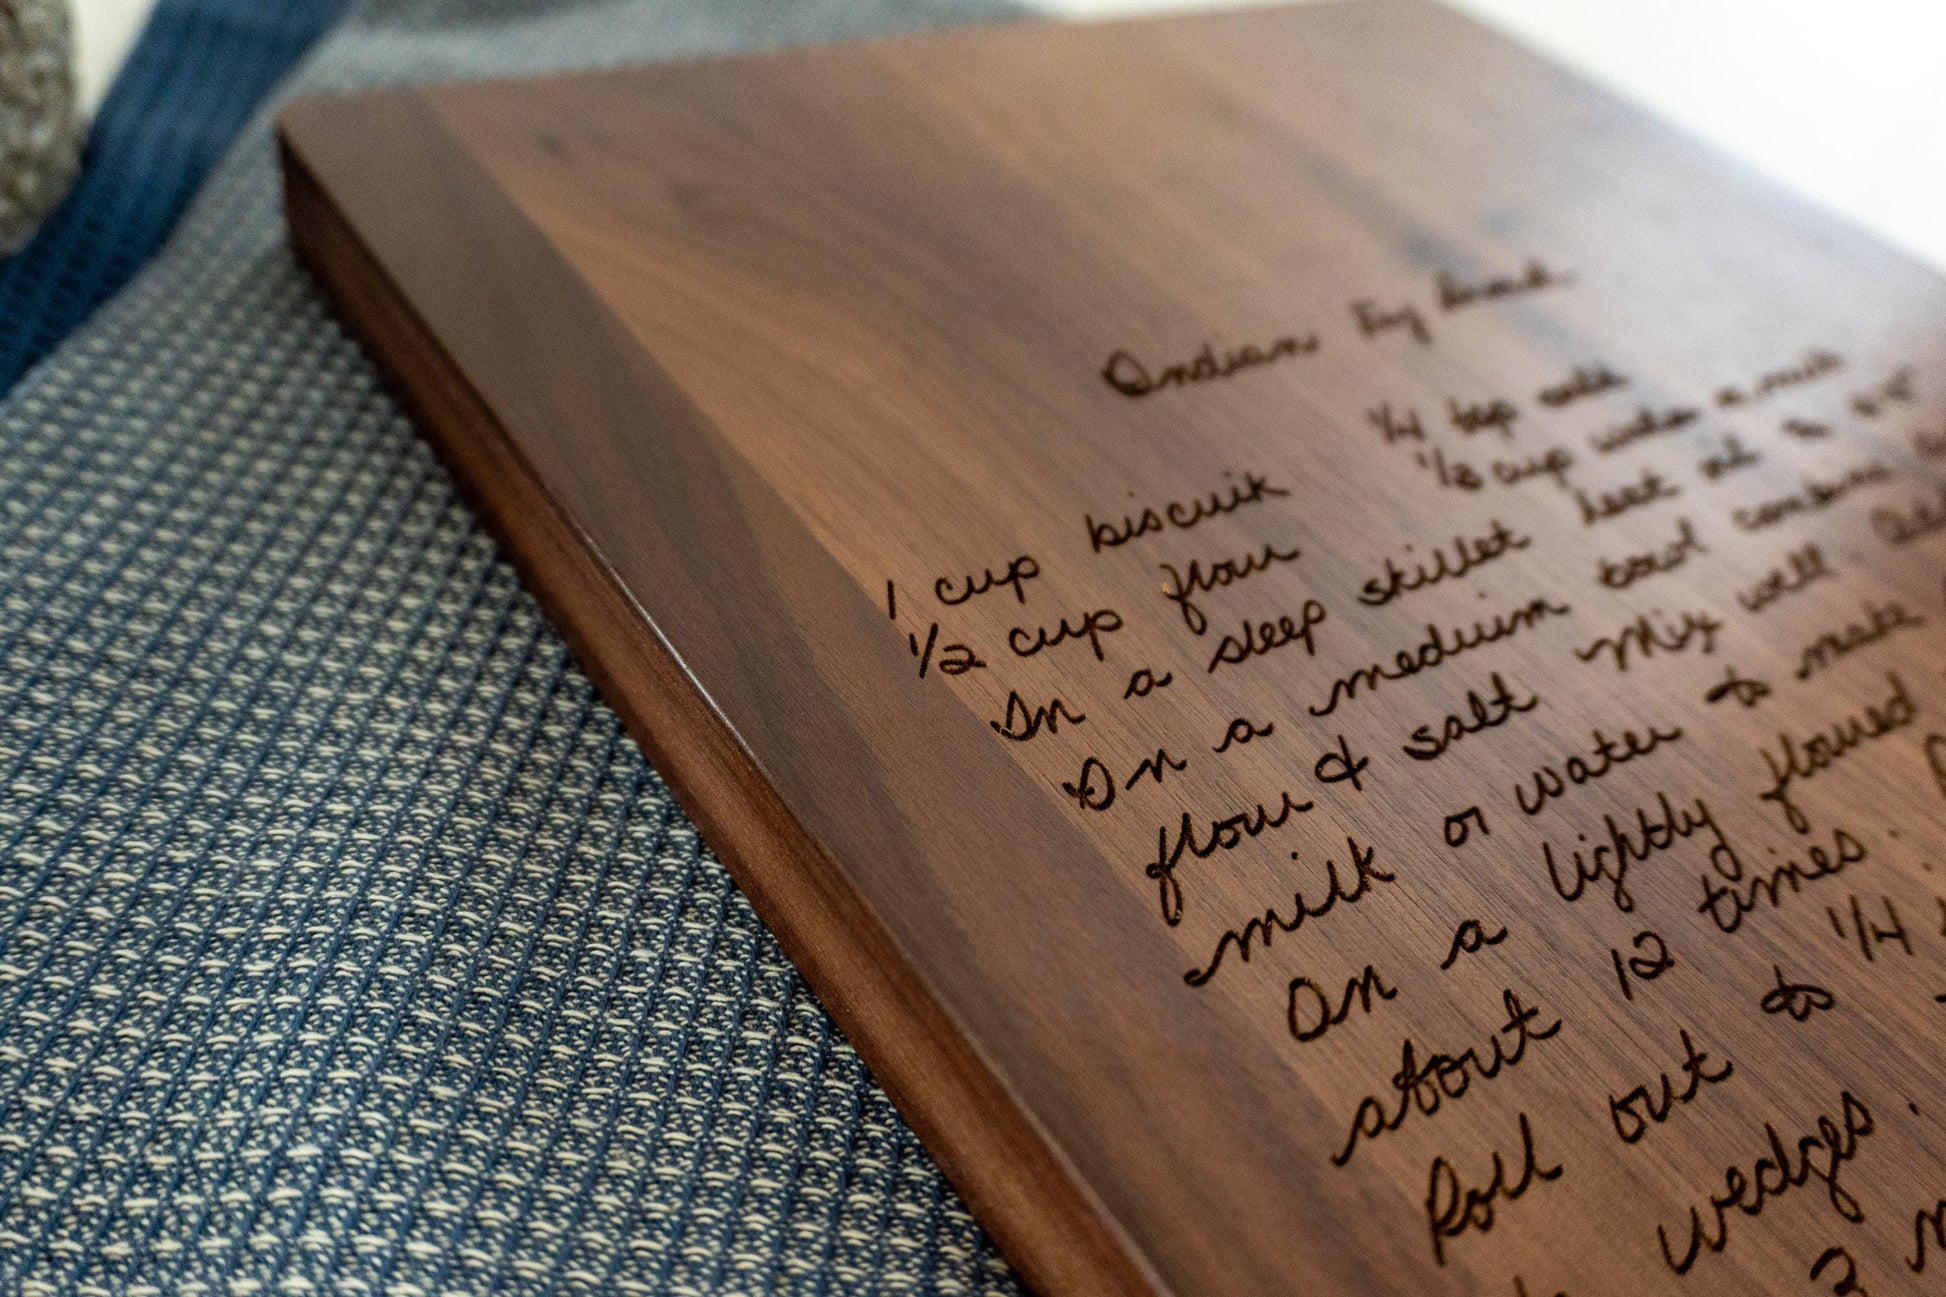 Indian Fry Bread
1/4 tsp salt
1 cup biscuik 1/3 cup water or milk
1/2 cup flour
In a deep skillet heat oil to
In a medium bowl combine
flour & salt Mix well
milk or water to make
On a lightly floured
about 12 times.
Roll out to 1/4
wedges.